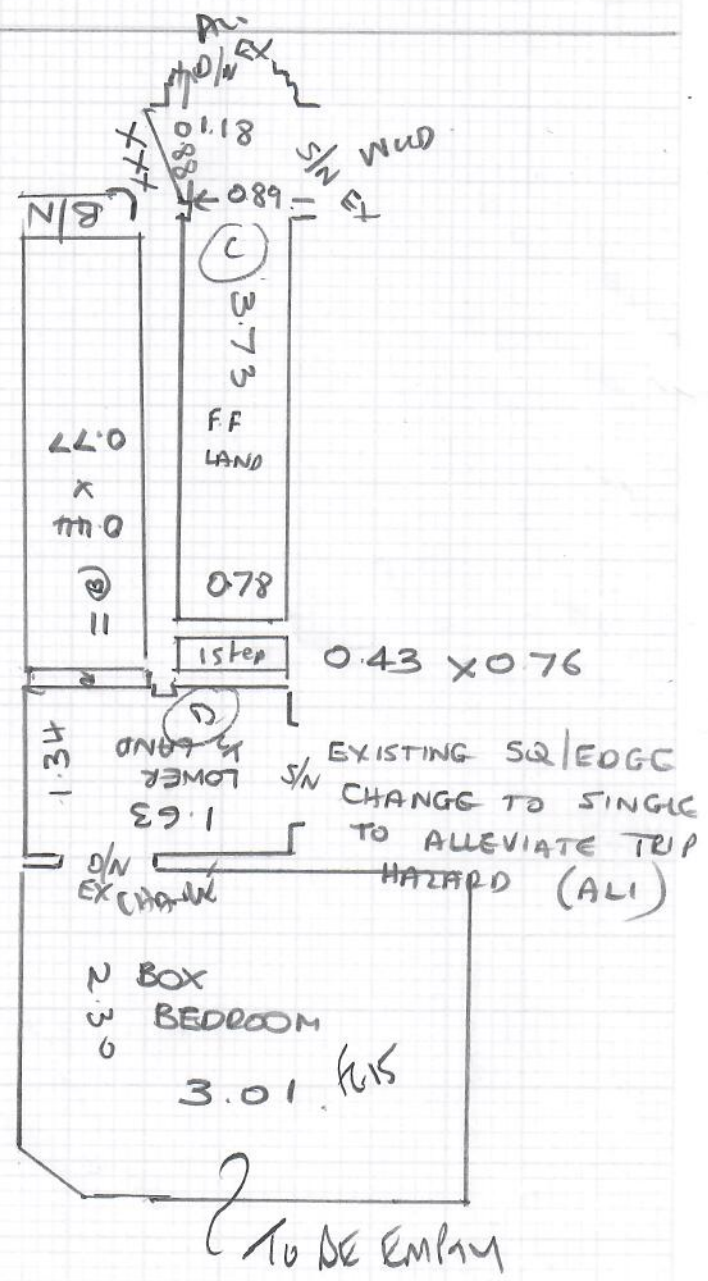 ALI
D/N EX
1.18
0.88
XXX
S/N EX
0.89
B/N
C
3.73
F.F
LAND
0.77
X
0.44
B =
0.78
1 step
0.43 X 0.76
R
D
1/2 LAND
LOWER
1.63
1.34
S/N
EXISTING SQ/EDGE
CHANGE TO SINGLE
TO ALLEVIATE TRIP
HAZARD (ALI)
D/N
EX
BOX
BEDROOM
2.30
3.01
TO BE EMPTY